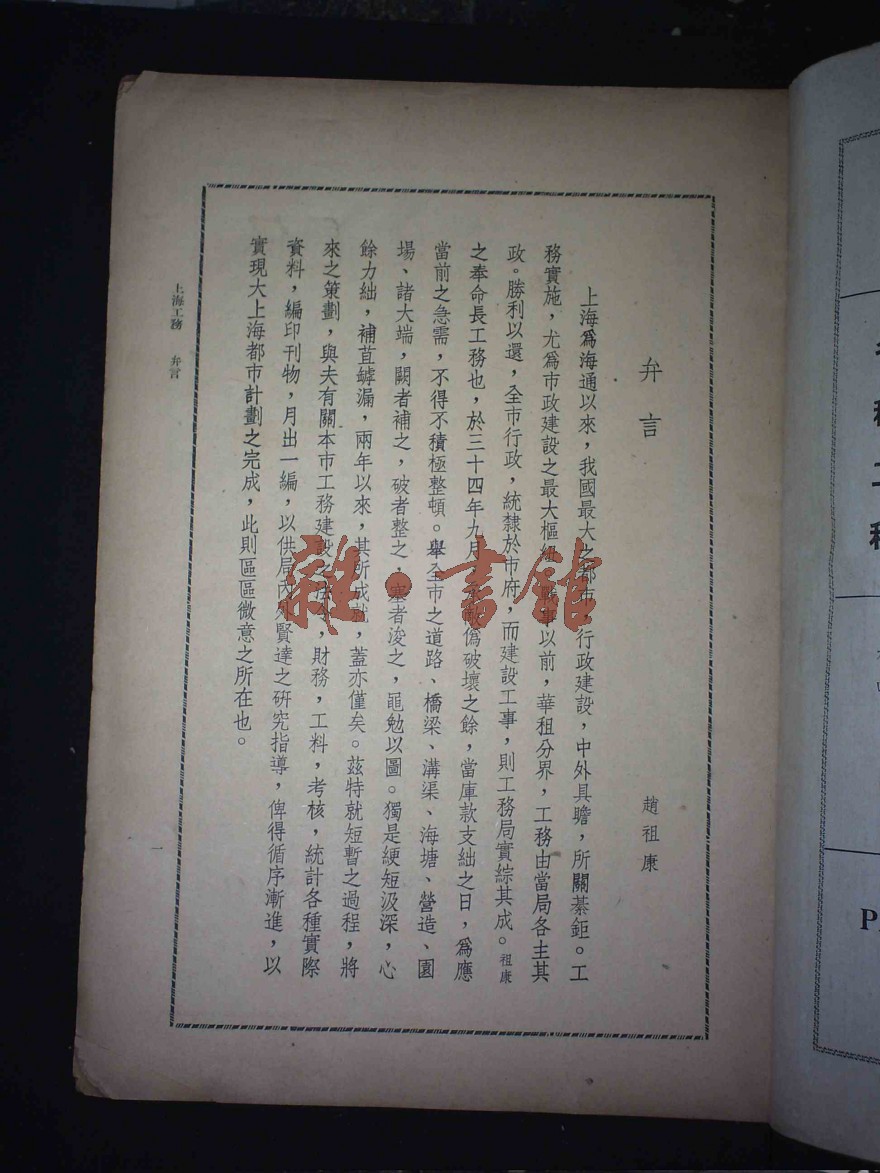 弁言
趙祖康
上海爲海通以來，我國最大之都市，行政建設，中外具瞻，所關綦鉅。工
務實施，尤爲市政建設之最大樞紐，事以前，華租分界，工務由當局各主其
政。勝利以還，全市行政，統隸於市府，而建設工事，則工務局實綜其成。祖康
之奉命長工務也，於三十四年九月，偽破壞之餘，當庫款支絀之日，爲應
當前之急需，不得不積極整頓。舉全市之道路、橋梁、溝渠、海塘、營造、園
場、諸大端，闕者補之，破者整之，塞者浚之，黽勉以圖。獨是綆短汲深，心
餘力絀，補苴罅漏，兩年以來，其所成就，蓋亦僅矣。茲特就短暫之過程，將
來之策劃，與夫有關本市工務建設之，財務，工料，考核，統計各種實際
資料，編印刊物，月出一編，以供局內外賢達之研究指導，俾得循序漸進，以
實現大上海都市計劃之完成，此則區區微意之所在也。
上海工務 弁言
一
雜·書館
P